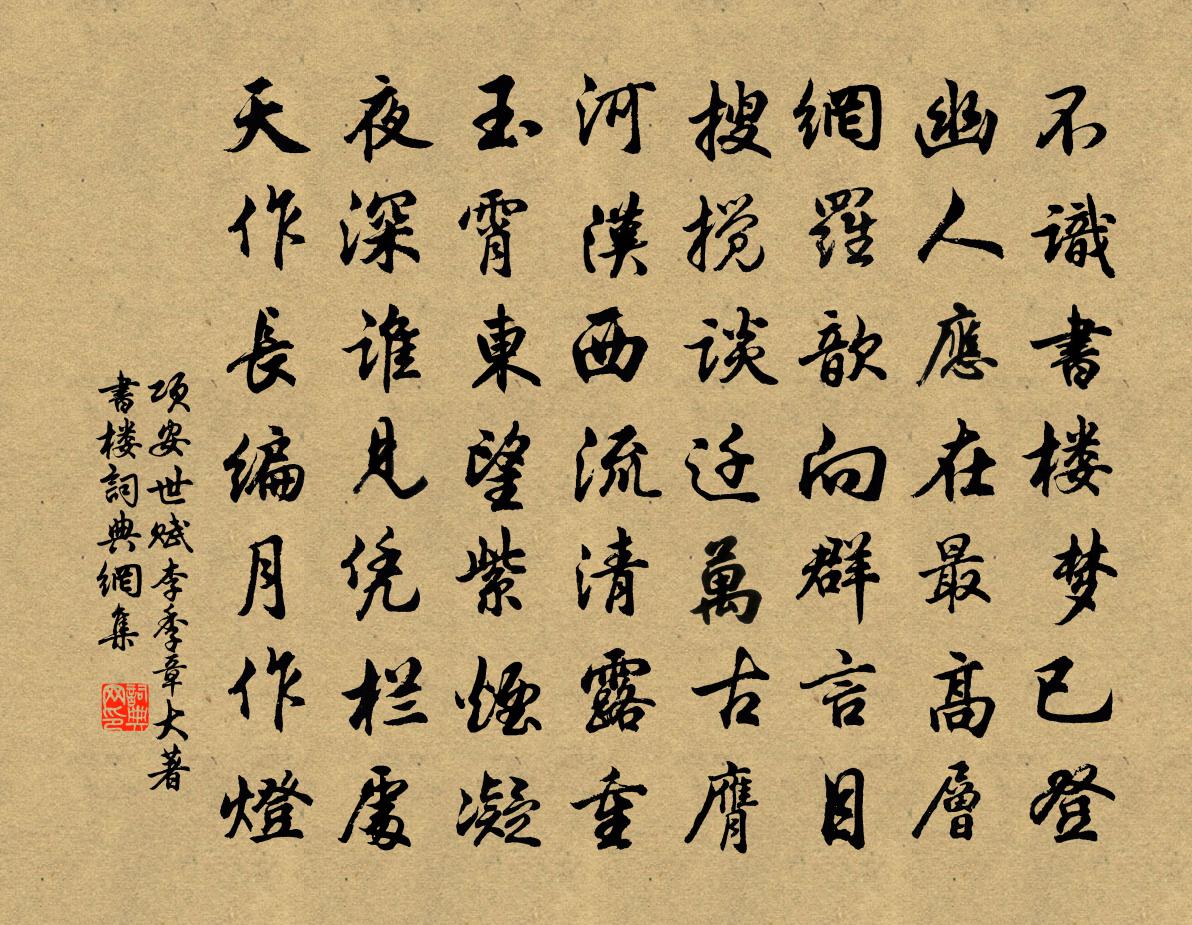 不識書楼梦已登
幽人應在最高層
網羅歆向群言目
搜搅談迁萬古膺
河漢西流清露重
玉霄東望紫煙凝
夜深誰見凭栏處
天作長編月作燈
项安世赋李季章大著
書楼詞典網集
詞典网印